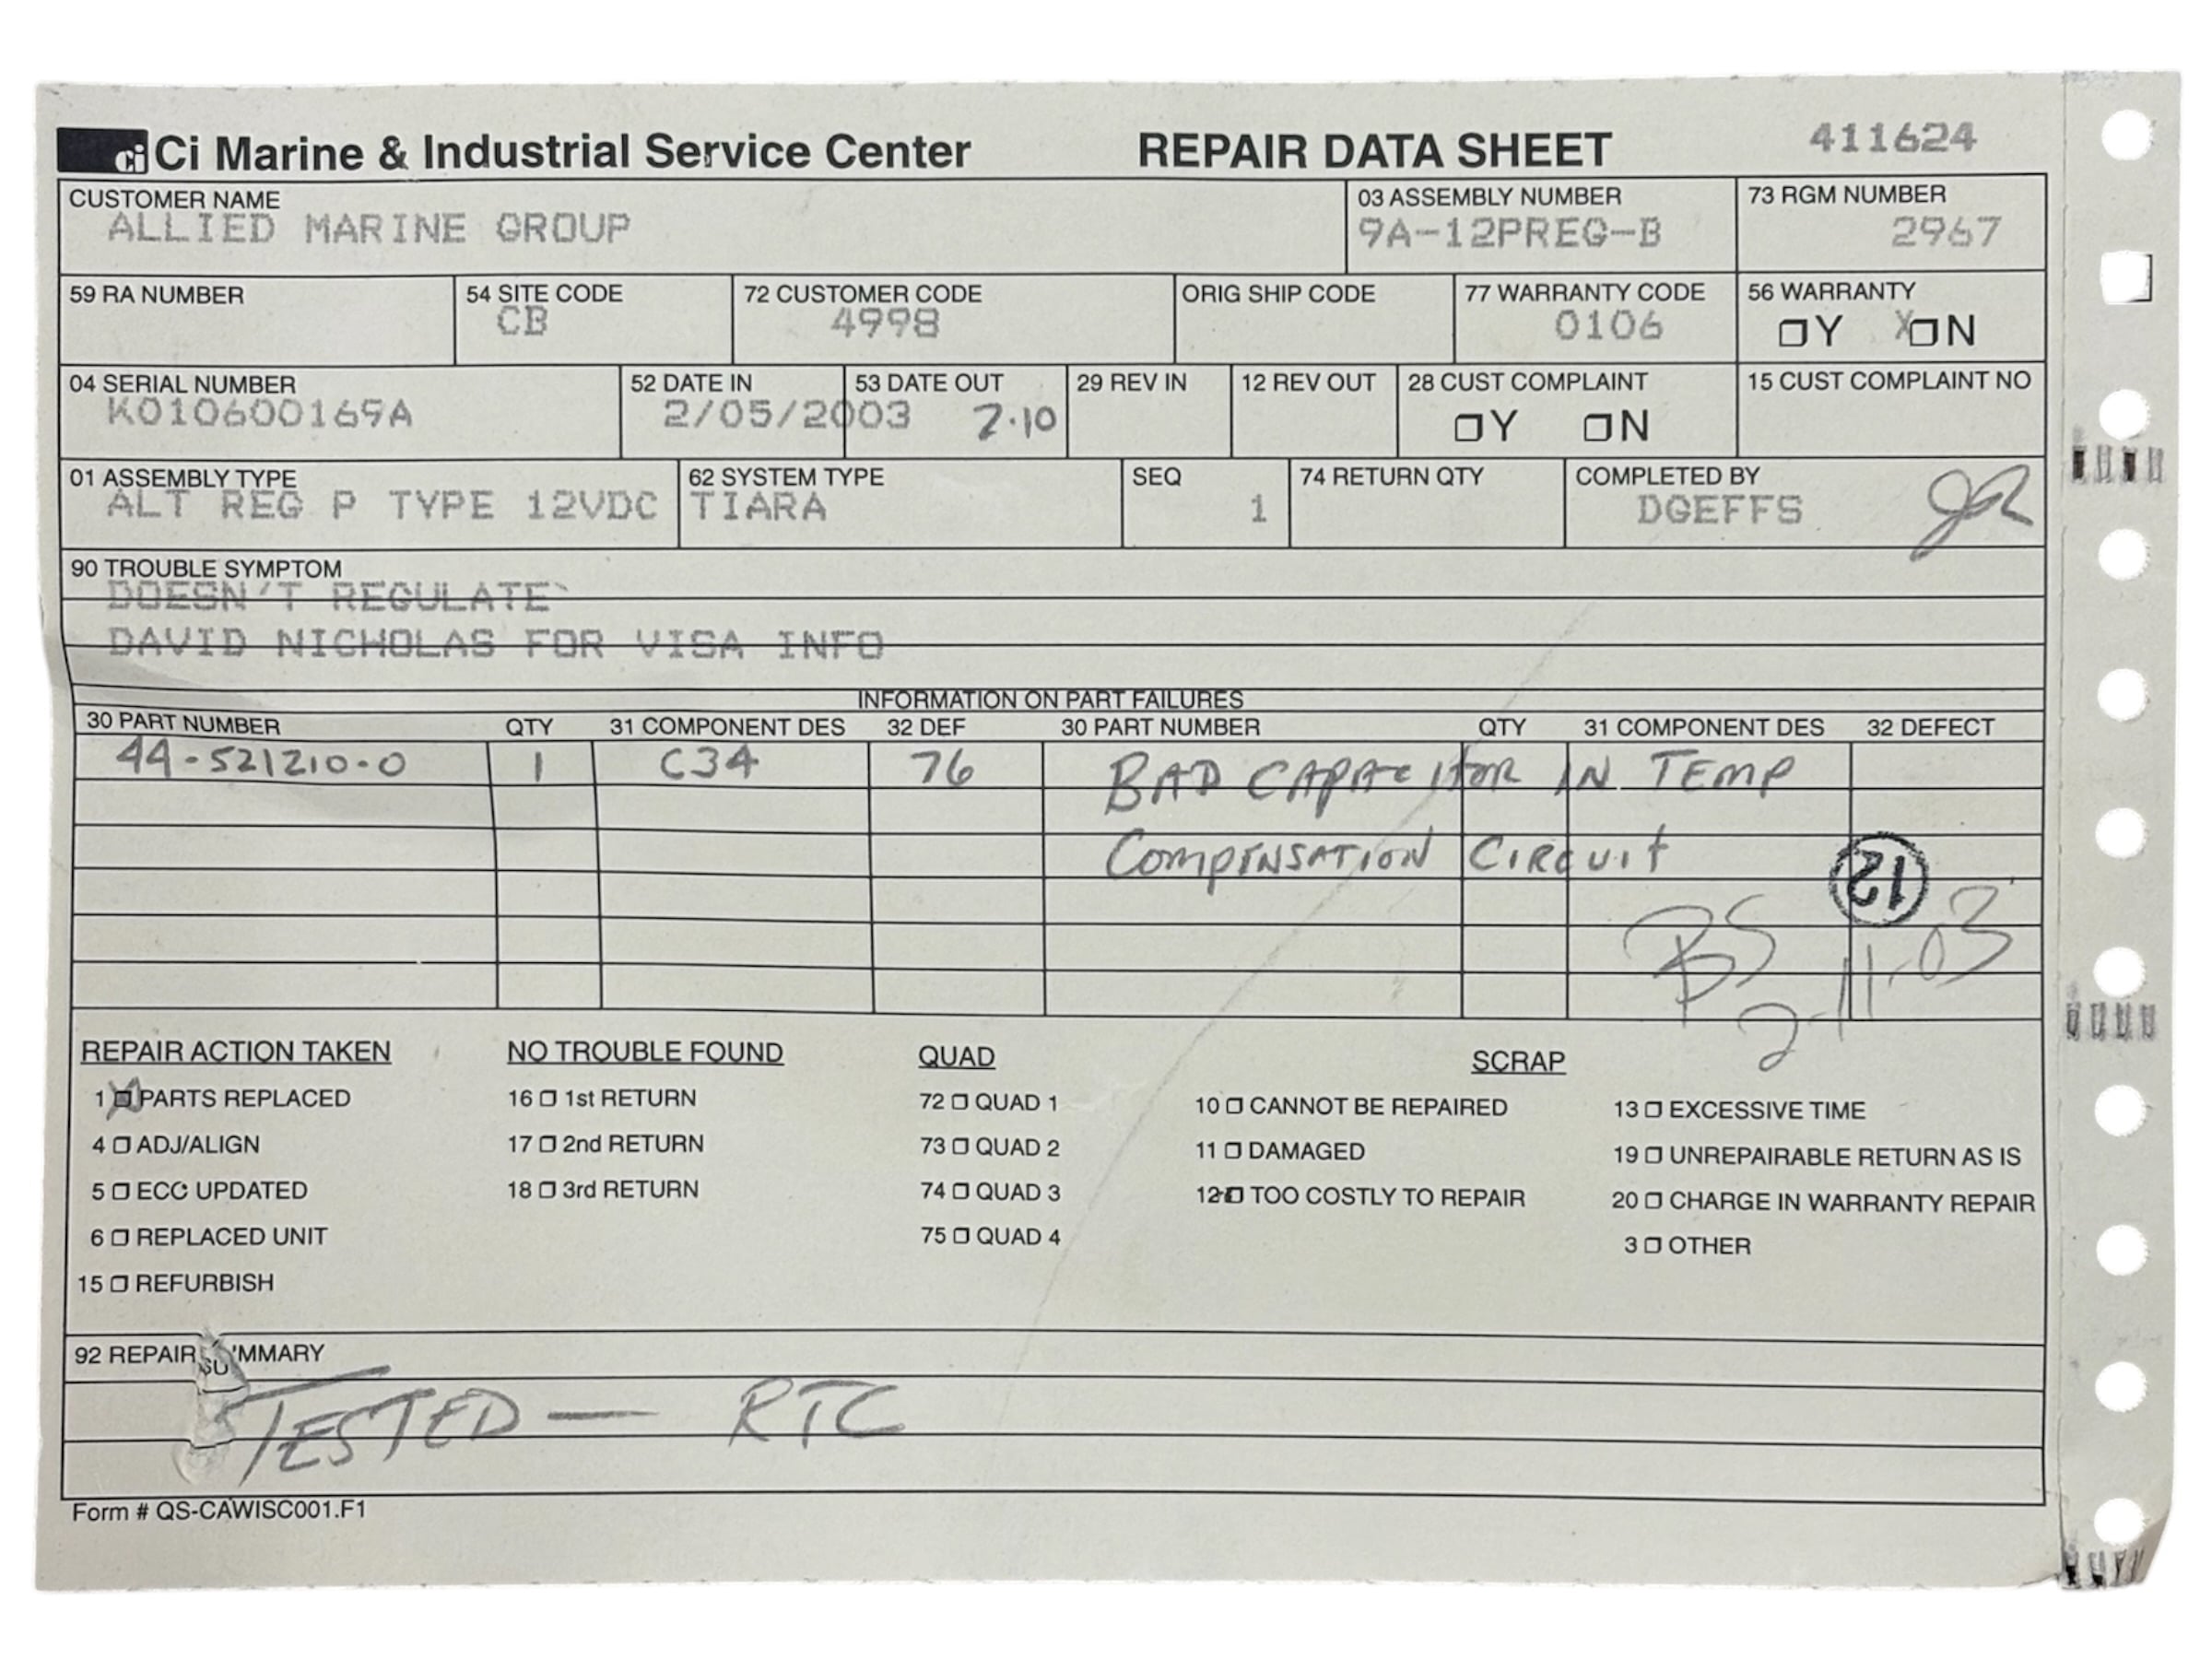 ci Ci Marine & Industrial Service Center REPAIR DATA SHEET 411624
CUSTOMER NAME 03 ASSEMBLY NUMBER 73 RGM NUMBER
ALLIED MARINE GROUP 9A-12PREG-B 2967
59 RA NUMBER 54 SITE CODE 72 CUSTOMER CODE ORIG SHIP CODE 77 WARRANTY CODE 56 WARRANTY
CB 4998 0106 Y X N
04 SERIAL NUMBER 52 DATE IN 53 DATE OUT 29 REV IN 12 REV OUT 28 CUST COMPLAINT 15 CUST COMPLAINT NO
K010600169A 2/05/2003 2.10 Y N
01 ASSEMBLY TYPE 62 SYSTEM TYPE SEQ 74 RETURN QTY COMPLETED BY
ALT REG P TYPE 12VDC TIARA 1 DGEFFS
90 TROUBLE SYMPTOM
DOESN'T REGULATE
DAVID NICHOLAS FOR VISA INFO
INFORMATION ON PART FAILURES
30 PART NUMBER QTY 31 COMPONENT DES 32 DEF 30 PART NUMBER QTY 31 COMPONENT DES 32 DEFECT
44-521210-0 1 C34 76 BAD CAPACITOR IN TEMP
COMPENSATION CIRCUIT
12
BS
2-11-03
REPAIR ACTION TAKEN NO TROUBLE FOUND QUAD SCRAP
1 X PARTS REPLACED 16 1st RETURN 72 QUAD 1 10 CANNOT BE REPAIRED 13 EXCESSIVE TIME
4 ADJ/ALIGN 17 2nd RETURN 73 QUAD 2 11 DAMAGED 19 UNREPAIRABLE RETURN AS IS
5 ECC UPDATED 18 3rd RETURN 74 QUAD 3 12 TOO COSTLY TO REPAIR 20 CHARGE IN WARRANTY REPAIR
6 REPLACED UNIT 75 QUAD 4 3 OTHER
15 REFURBISH
92 REPAIR SUMMARY
TESTED — RTC
Form # QS-CAWISC001.F1